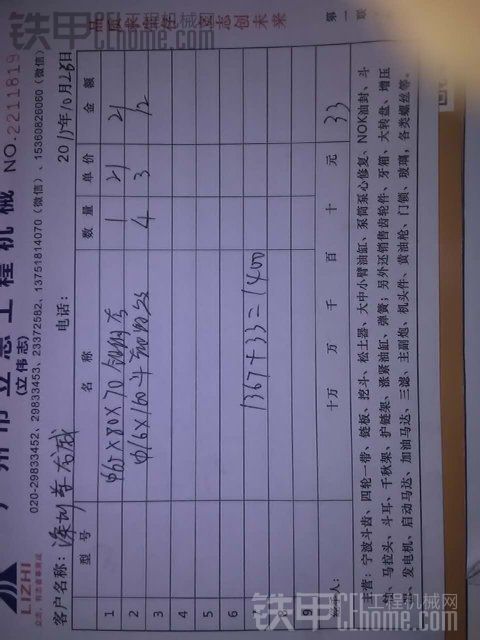 铁甲工程机械网
品质
立志创未来
第一联
广州市立志工程机械 NO.2211819
(立伟志)
LIZHI
020-29833452、29833453、23372582、13751814070(微信)、15360826060(微信)
客户名称: 深圳李 电话: 2015年10月28日
型号 名称 数量 单价 金额
1 φ65×80×70 1 21 21
2 φ16×160斗 4 3 12
3
4
5
6
7 1367+33=1400
8
9
十万 万 千 百 十 元 33
主营:宁波斗齿、四轮一带、链板、挖斗、松土器、大中小臂油缸、泵筒泵心修复、NOK油封、斗
轴、马拉头、斗耳、千秋架、护链架、涨紧油缸、弹簧;另外还销售齿轮件、牙箱、大转盘、增压
器、发电机、启动马达、加油马达、三滤、主副炮、机头件、黄油枪、门锁、玻璃,各类螺丝等。
铁甲工程机械网
bbs.cehome.com